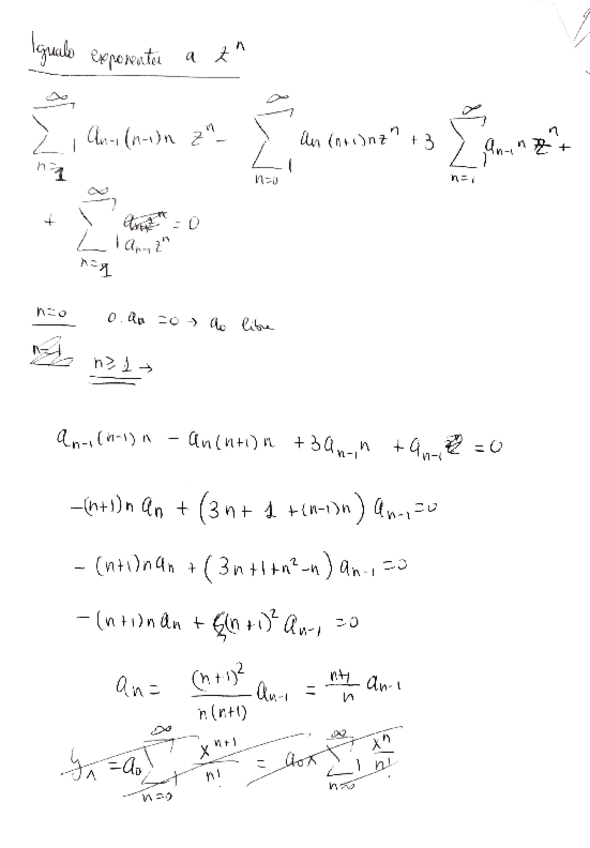 Igualo exponentes a z^n
∑_{n=1}^{∞} a_{n-1}(n-1)n z^n - ∑_{n=0}^{∞} a_n(n+1)n z^n + 3 ∑_{n=1}^{∞} a_{n-1} n z^n +
+ ∑_{n=1}^{∞} a_{n-1} z^n = 0
n=0 0·a_n = 0 → a_0 libre
n=1
n≥1 →
a_{n-1}(n-1)n - a_n(n+1)n + 3a_{n-1}n + a_{n-1} = 0
-(n+1)n a_n + (3n + 1 + (n-1)n) a_{n-1} = 0
-(n+1)n a_n + (3n+1+n²-n) a_{n-1} = 0
-(n+1)n a_n + (n+1)² a_{n-1} = 0
a_n = \frac{(n+1)²}{n(n+1)} a_{n-1} = \frac{n+1}{n} a_{n-1}
y_1 = a_0 ∑_{n=0}^{∞} \frac{x^{n+1}}{n!} = a_0 x ∑_{n=0}^{∞} \frac{x^n}{n!}